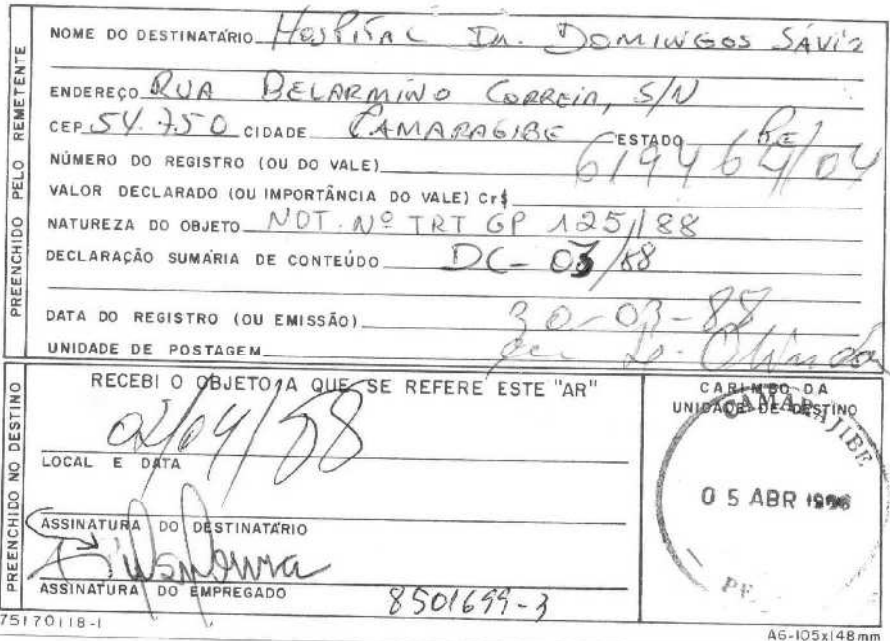 PREENCHIDO PELO REMETENTE
NOME DO DESTINATÁRIO Hospital Dr. Domingos Sávio
ENDEREÇO RUA BELARMINO CORREIA, S/N
CEP 54.750 CIDADE CAMARAGIBE ESTADO PE
NÚMERO DO REGISTRO (OU DO VALE) 619464/04
VALOR DECLARADO (OU IMPORTÂNCIA DO VALE) Cr$
NATUREZA DO OBJETO NOT. Nº TRT GP 125/88
DECLARAÇÃO SUMÁRIA DE CONTEÚDO DC-03/88
DATA DO REGISTRO (OU EMISSÃO) 30-03-88
UNIDADE DE POSTAGEM
PREENCHIDO NO DESTINO
RECEBI O OBJETO A QUE SE REFERE ESTE "AR"
02/04/88
LOCAL E DATA
ASSINATURA DO DESTINATÁRIO
ASSINATURA DO EMPREGADO 8501699-3
CARIMBO DA
UNIDADE DE DESTINO
CAMARAJIBE
05 ABR
PE
75170118-1
A6-105x148mm